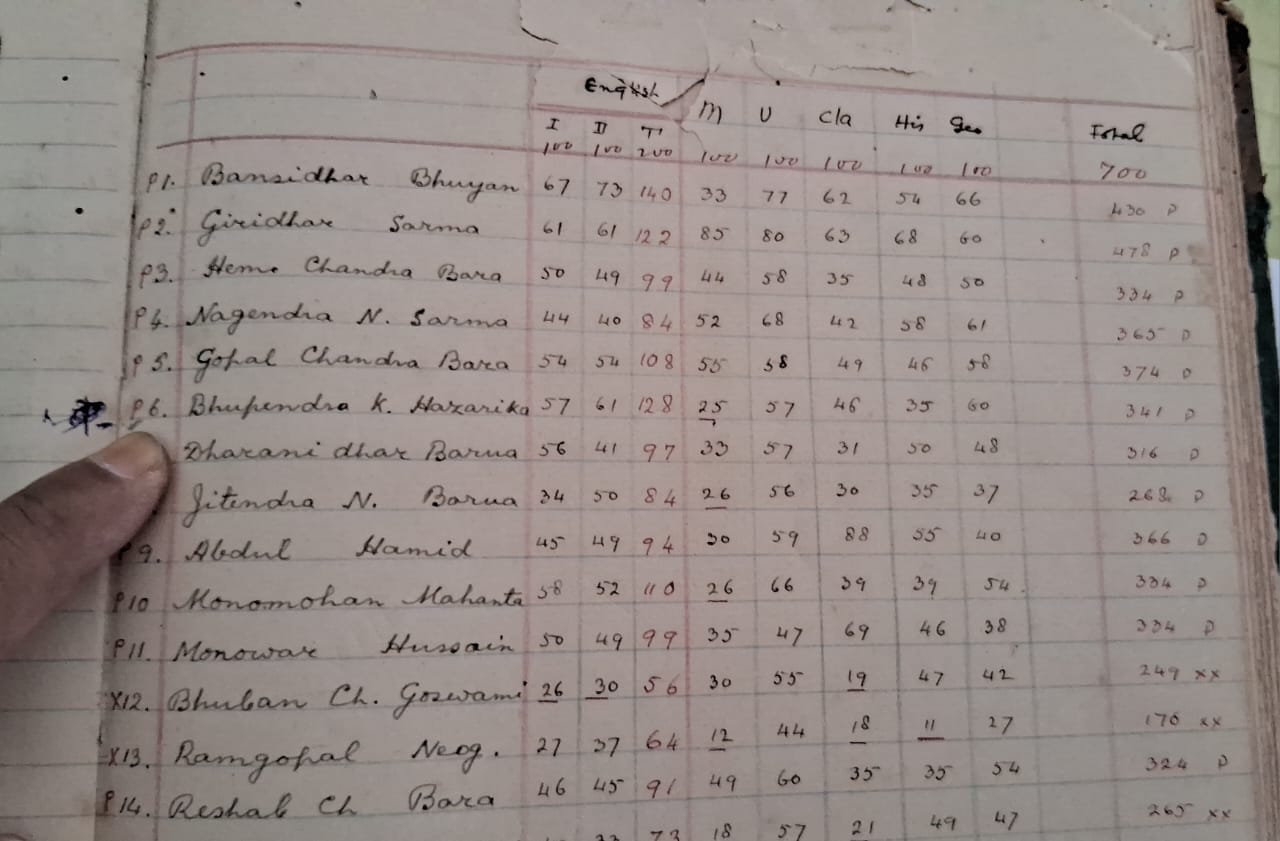 English M U Cla His Geo Total
I II T
100 100 200 100 100 100 100 100 700
P1. Bansidhar Bhuyan 67 73 140 33 77 62 54 66 430 P
P2. Giridhar Sarma 61 61 122 85 80 63 68 60 478 P
P3. Hem Chandra Bara 50 49 99 44 58 35 48 50 334 P
P4. Nagendra N. Sarma 44 40 84 52 68 42 58 61 365 P
P5. Gopal Chandra Bara 54 54 108 55 58 49 46 58 374 P
P6. Bhupendra K. Hazarika 57 61 128 25 57 46 35 60 341 P
Dharani dhar Barua 56 41 97 33 57 31 50 48 316 P
Jitendra N. Barua 34 50 84 26 56 30 35 37 268 P
P9. Abdul Hamid 45 49 94 30 59 88 55 40 366 P
P10 Monomohan Mahanta 58 52 110 26 66 39 39 54 334 P
P11. Monowar Hussain 50 49 99 35 47 69 46 38 334 P
X12. Bhuban Ch. Goswami 26 30 56 30 55 19 47 42 249 xx
X13. Ramgopal Neog. 27 37 64 12 44 18 11 27 176 xx
P14. Reshab Ch Bara 46 45 91 49 60 35 35 54 324 P
73 18 57 21 49 47 265 xx